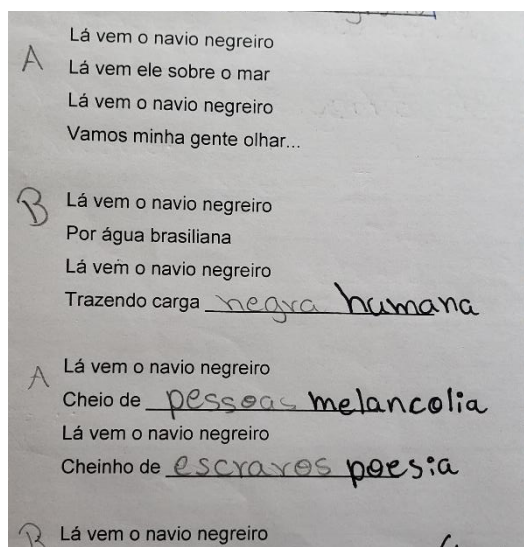 A Lá vem o navio negreiro
Lá vem ele sobre o mar
Lá vem o navio negreiro
Vamos minha gente olhar...
B Lá vem o navio negreiro
Por água brasiliana
Lá vem o navio negreiro
Trazendo carga negra humana
A Lá vem o navio negreiro
Cheio de pessoas melancolia
Lá vem o navio negreiro
Cheinho de escravos poesia
B Lá vem o navio negreiro